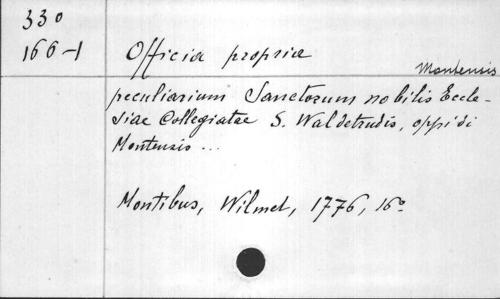 330
166-1
Officia propria
Montensis
peculiarium Sanctorum nobilis Eccle-
siae Collegiatae S. Waldetrudis, oppidi
Montensis ...
Montibus, Wilmet, 1776, 16°